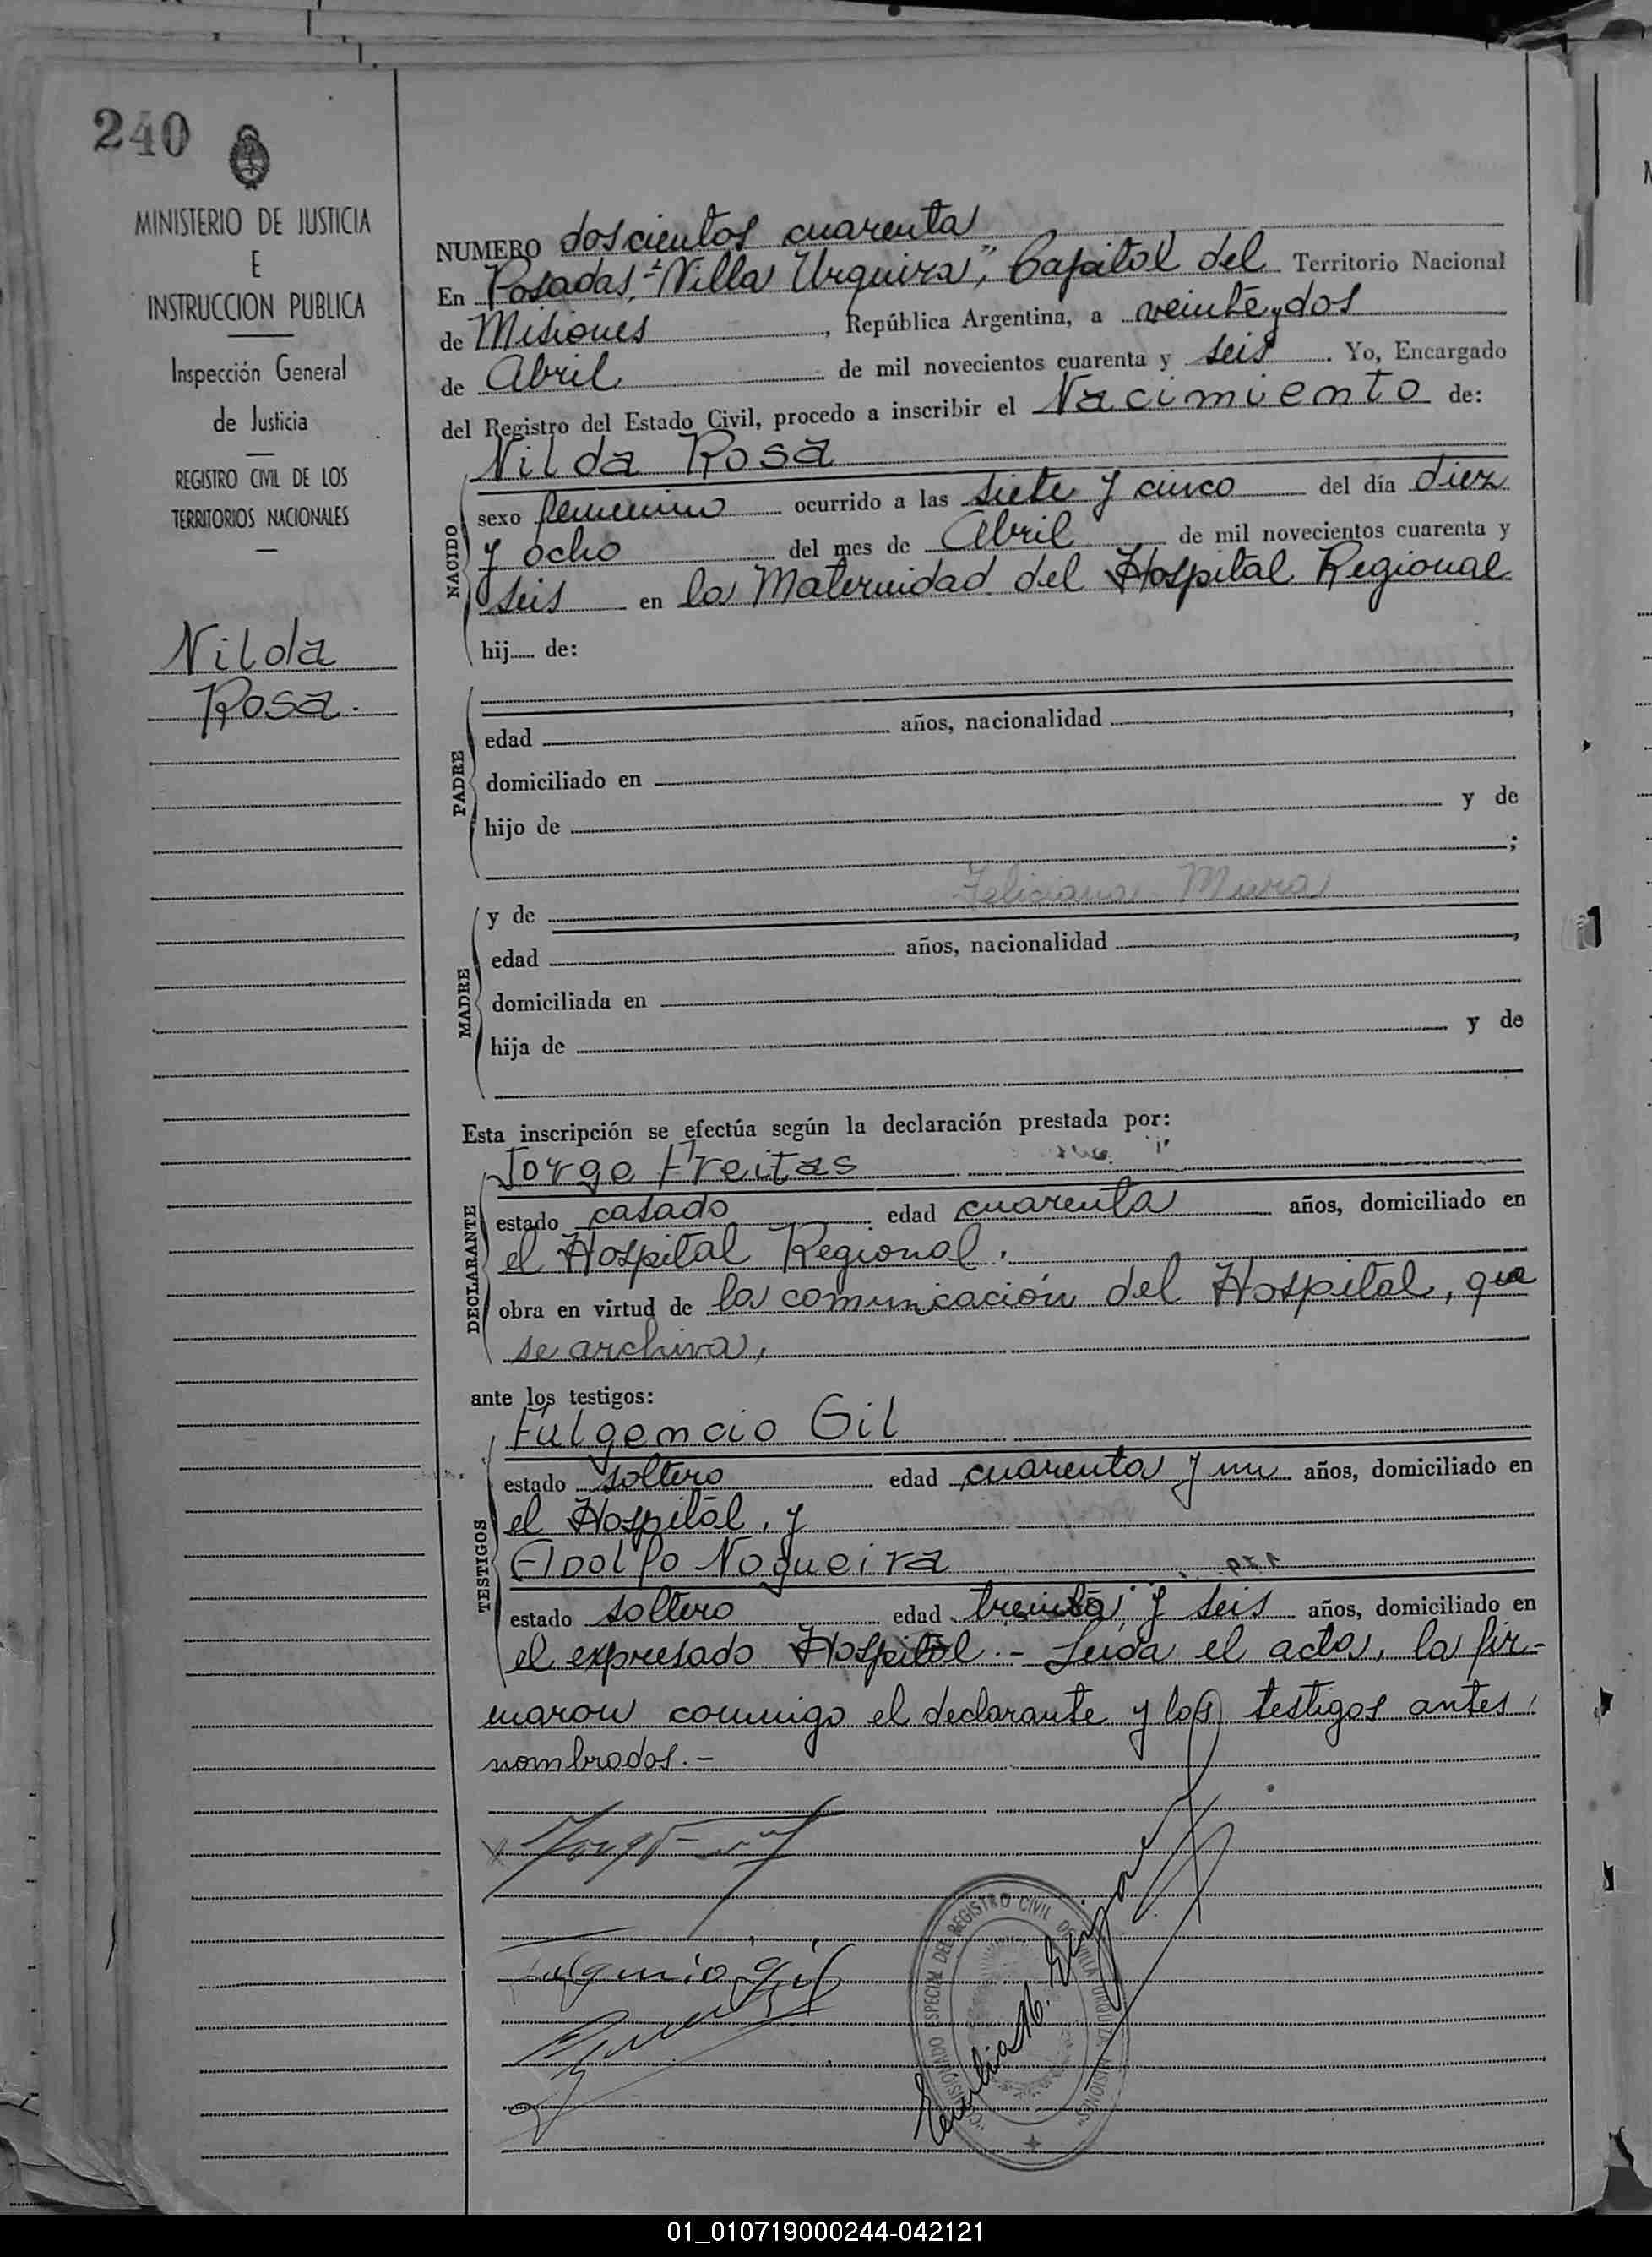 240
MINISTERIO DE JUSTICIA
E
INSTRUCCION PUBLICA
Inspección General
de Justicia
REGISTRO CIVIL DE LOS
TERRITORIOS NACIONALES
Nilda
Rosa.
NUMERO doscientos cuarenta
En Posadas, "Villa Urquiza", Capital del Territorio Nacional
de Misiones, República Argentina, a veinte y dos
de Abril de mil novecientos cuarenta y seis. Yo, Encargado
del Registro del Estado Civil, procedo a inscribir el Nacimiento de:
NACIDO
Nilda Rosa
sexo femenino ocurrido a las siete y cinco del día diez
y ocho del mes de Abril de mil novecientos cuarenta y
seis en la Maternidad del Hospital Regional
hij..... de:
PADRE
edad años, nacionalidad ,
domiciliado en
hijo de y de
;
MADRE
y de Feliciana
edad años, nacionalidad ,
domiciliada en
hija de y de
Esta inscripción se efectúa según la declaración prestada por:
DECLARANTE
Jorge Freitas
estado casado edad cuarenta años, domiciliado en
el Hospital Regional.
obra en virtud de la comunicación del Hospital, que
se archiva,
ante los testigos:
TESTIGOS
Fulgencio Gil
estado soltero edad cuarenta y un años, domiciliado en
el Hospital, y
Adolfo Nogueira
estado soltero edad treinta y seis años, domiciliado en
el expresado Hospital.- Leída el acta, la fir-
maron conmigo el declarante y los testigos antes
nombrados.-
Fulgencio Gil
COMISIONADO ESPECIAL DEL REGISTRO CIVIL DE VILLA URQUIZA MISIONES
01_010719000244-042121